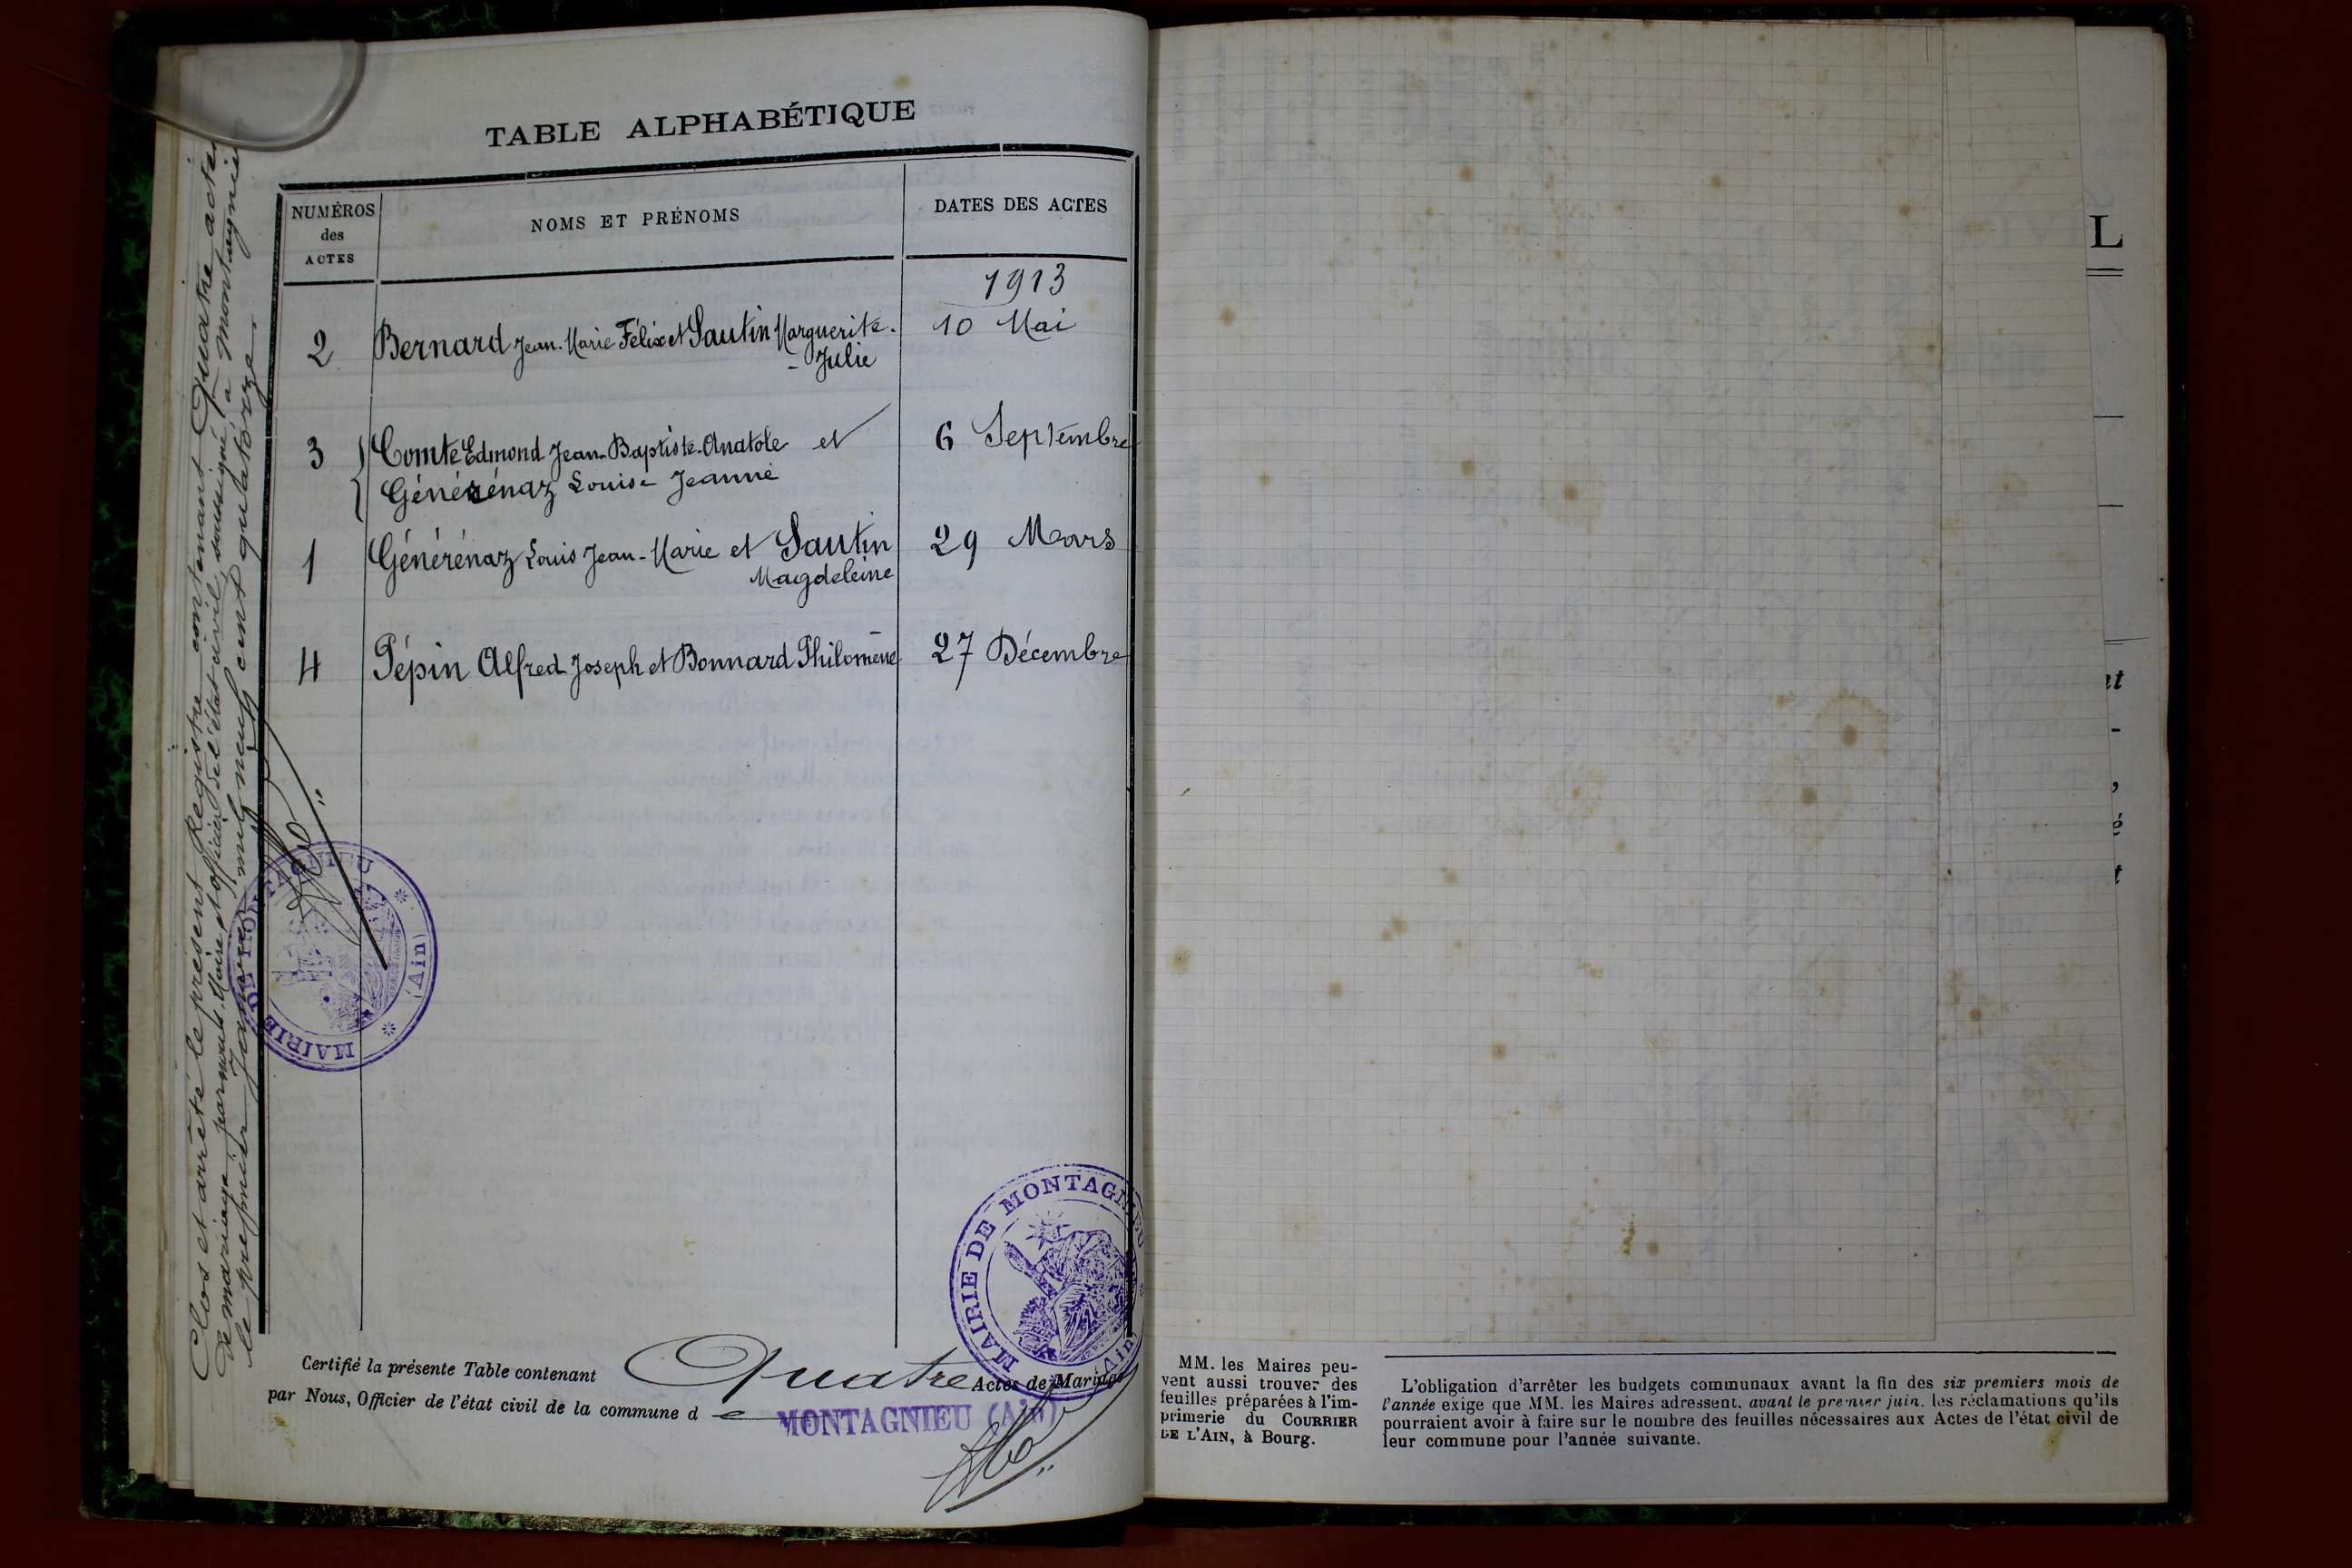 TABLE ALPHABÉTIQUE
NUMÉROS
des
ACTES
NOMS ET PRÉNOMS
DATES DES ACTES
1913
2 Bernard Jean-Marie Félix et Sautin Marguerite- 10 Mai
- Julie
3 Comte Edmond Jean-Baptiste-Anatole et 6 Septembre
Générénaz Louise Jeanne
1 Générénaz Louis Jean-Marie et Sautin 29 Mars
Magdeleine
4 Pépin Alfred Joseph et Bonnard Philomène 27 Décembre
Clos et arrêté le présent Registre contenant Quatre actes
de mariage par nous Maire et officier de l'état civil soussigné à Montagnieu
le premier Janvier mil neuf cent quatorze
MAIRIE DE MONTAGNIEU
(Ain)
MAIRIE DE MONTAGNIEU
(Ain)
Certifié la présente Table contenant Quatre Actes de Mariage
par Nous, Officier de l'état civil de la commune d e MONTAGNIEU (Ain)
MM. les Maires peu-
vent aussi trouver des
feuilles préparées à l'im-
primerie du COURRIER
DE L'AIN, à Bourg.
L'obligation d'arrêter les budgets communaux avant la fin des six premiers mois de
l'année exige que MM. les Maires adressent, avant le premier juin, les réclamations qu'ils
pourraient avoir à faire sur le nombre des feuilles nécessaires aux Actes de l'état civil de
leur commune pour l'année suivante.
L